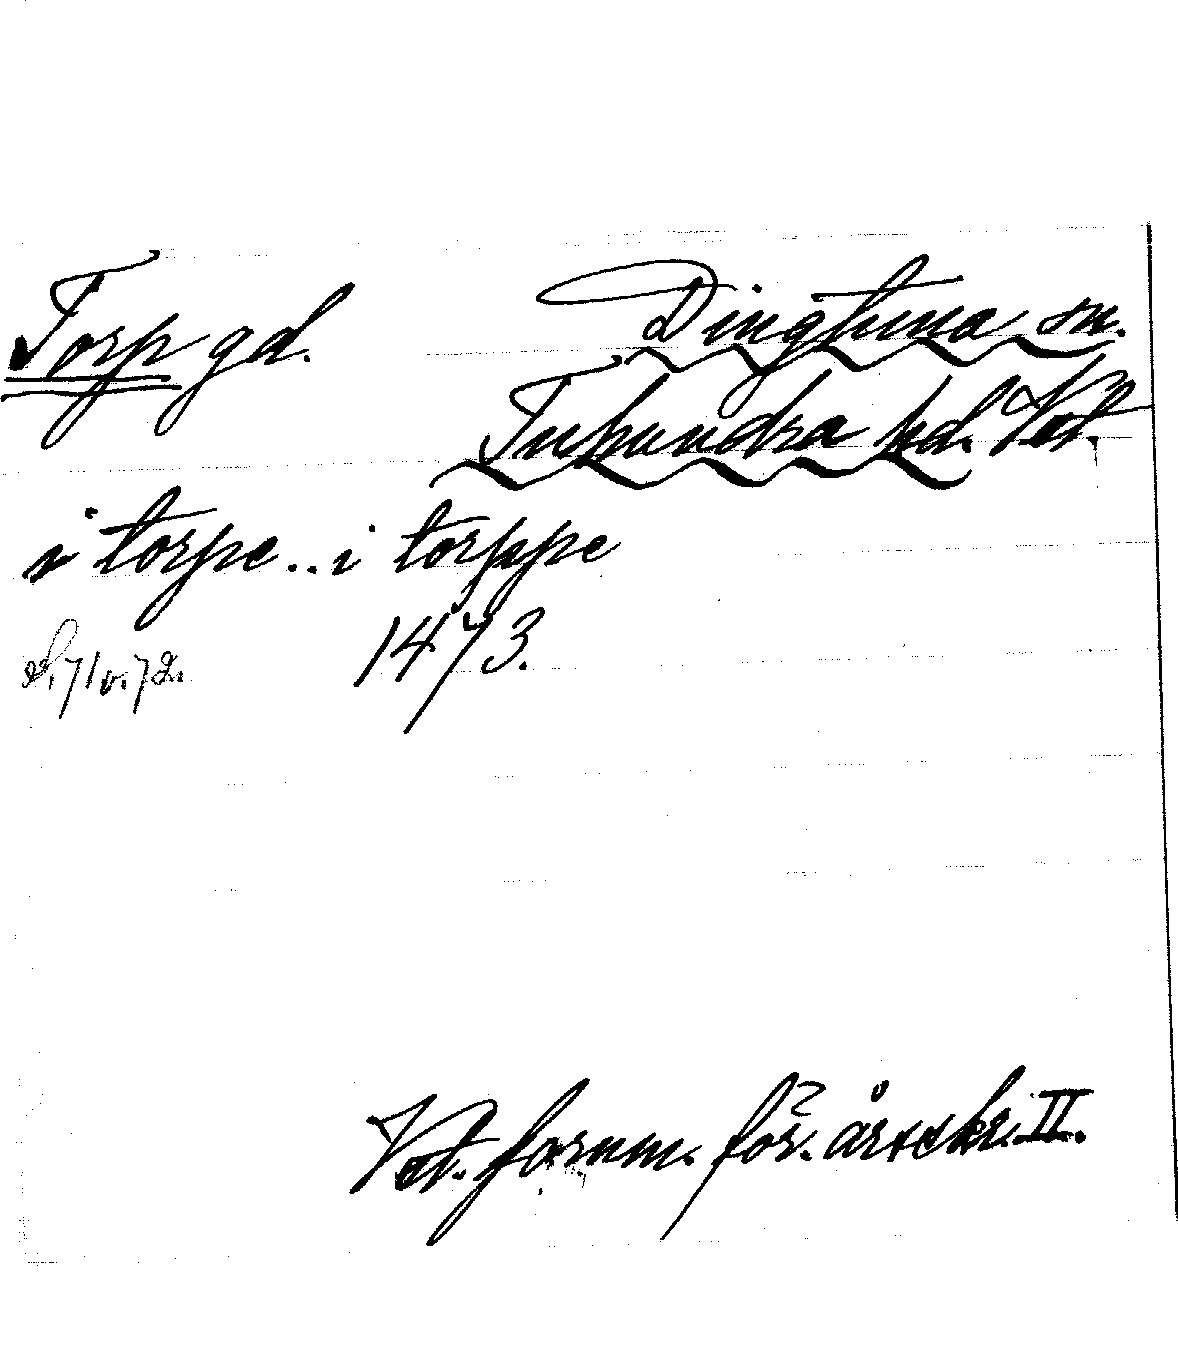 Torp gd. Dingtuna sn.
Tuhundra hd. Vstl.
i torpe.. i torppe
S. 71 o. 72. 1473.
Vstl. fornm. för. årsskr. II.